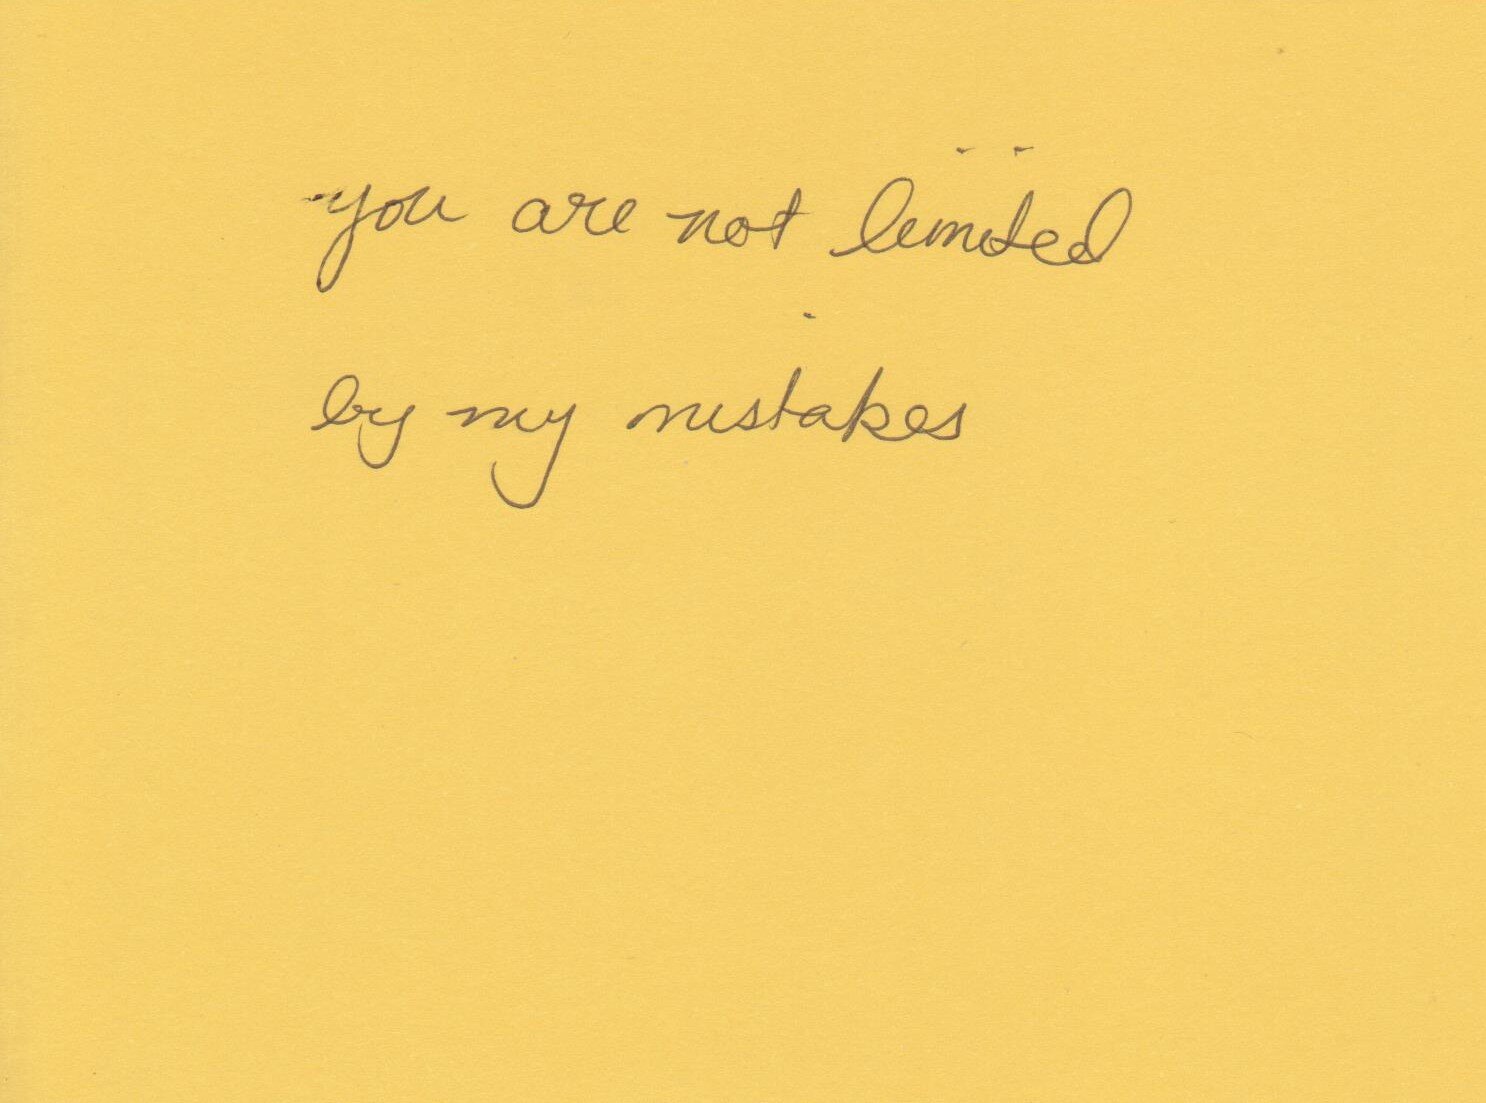 you are not limited
by my mistakes